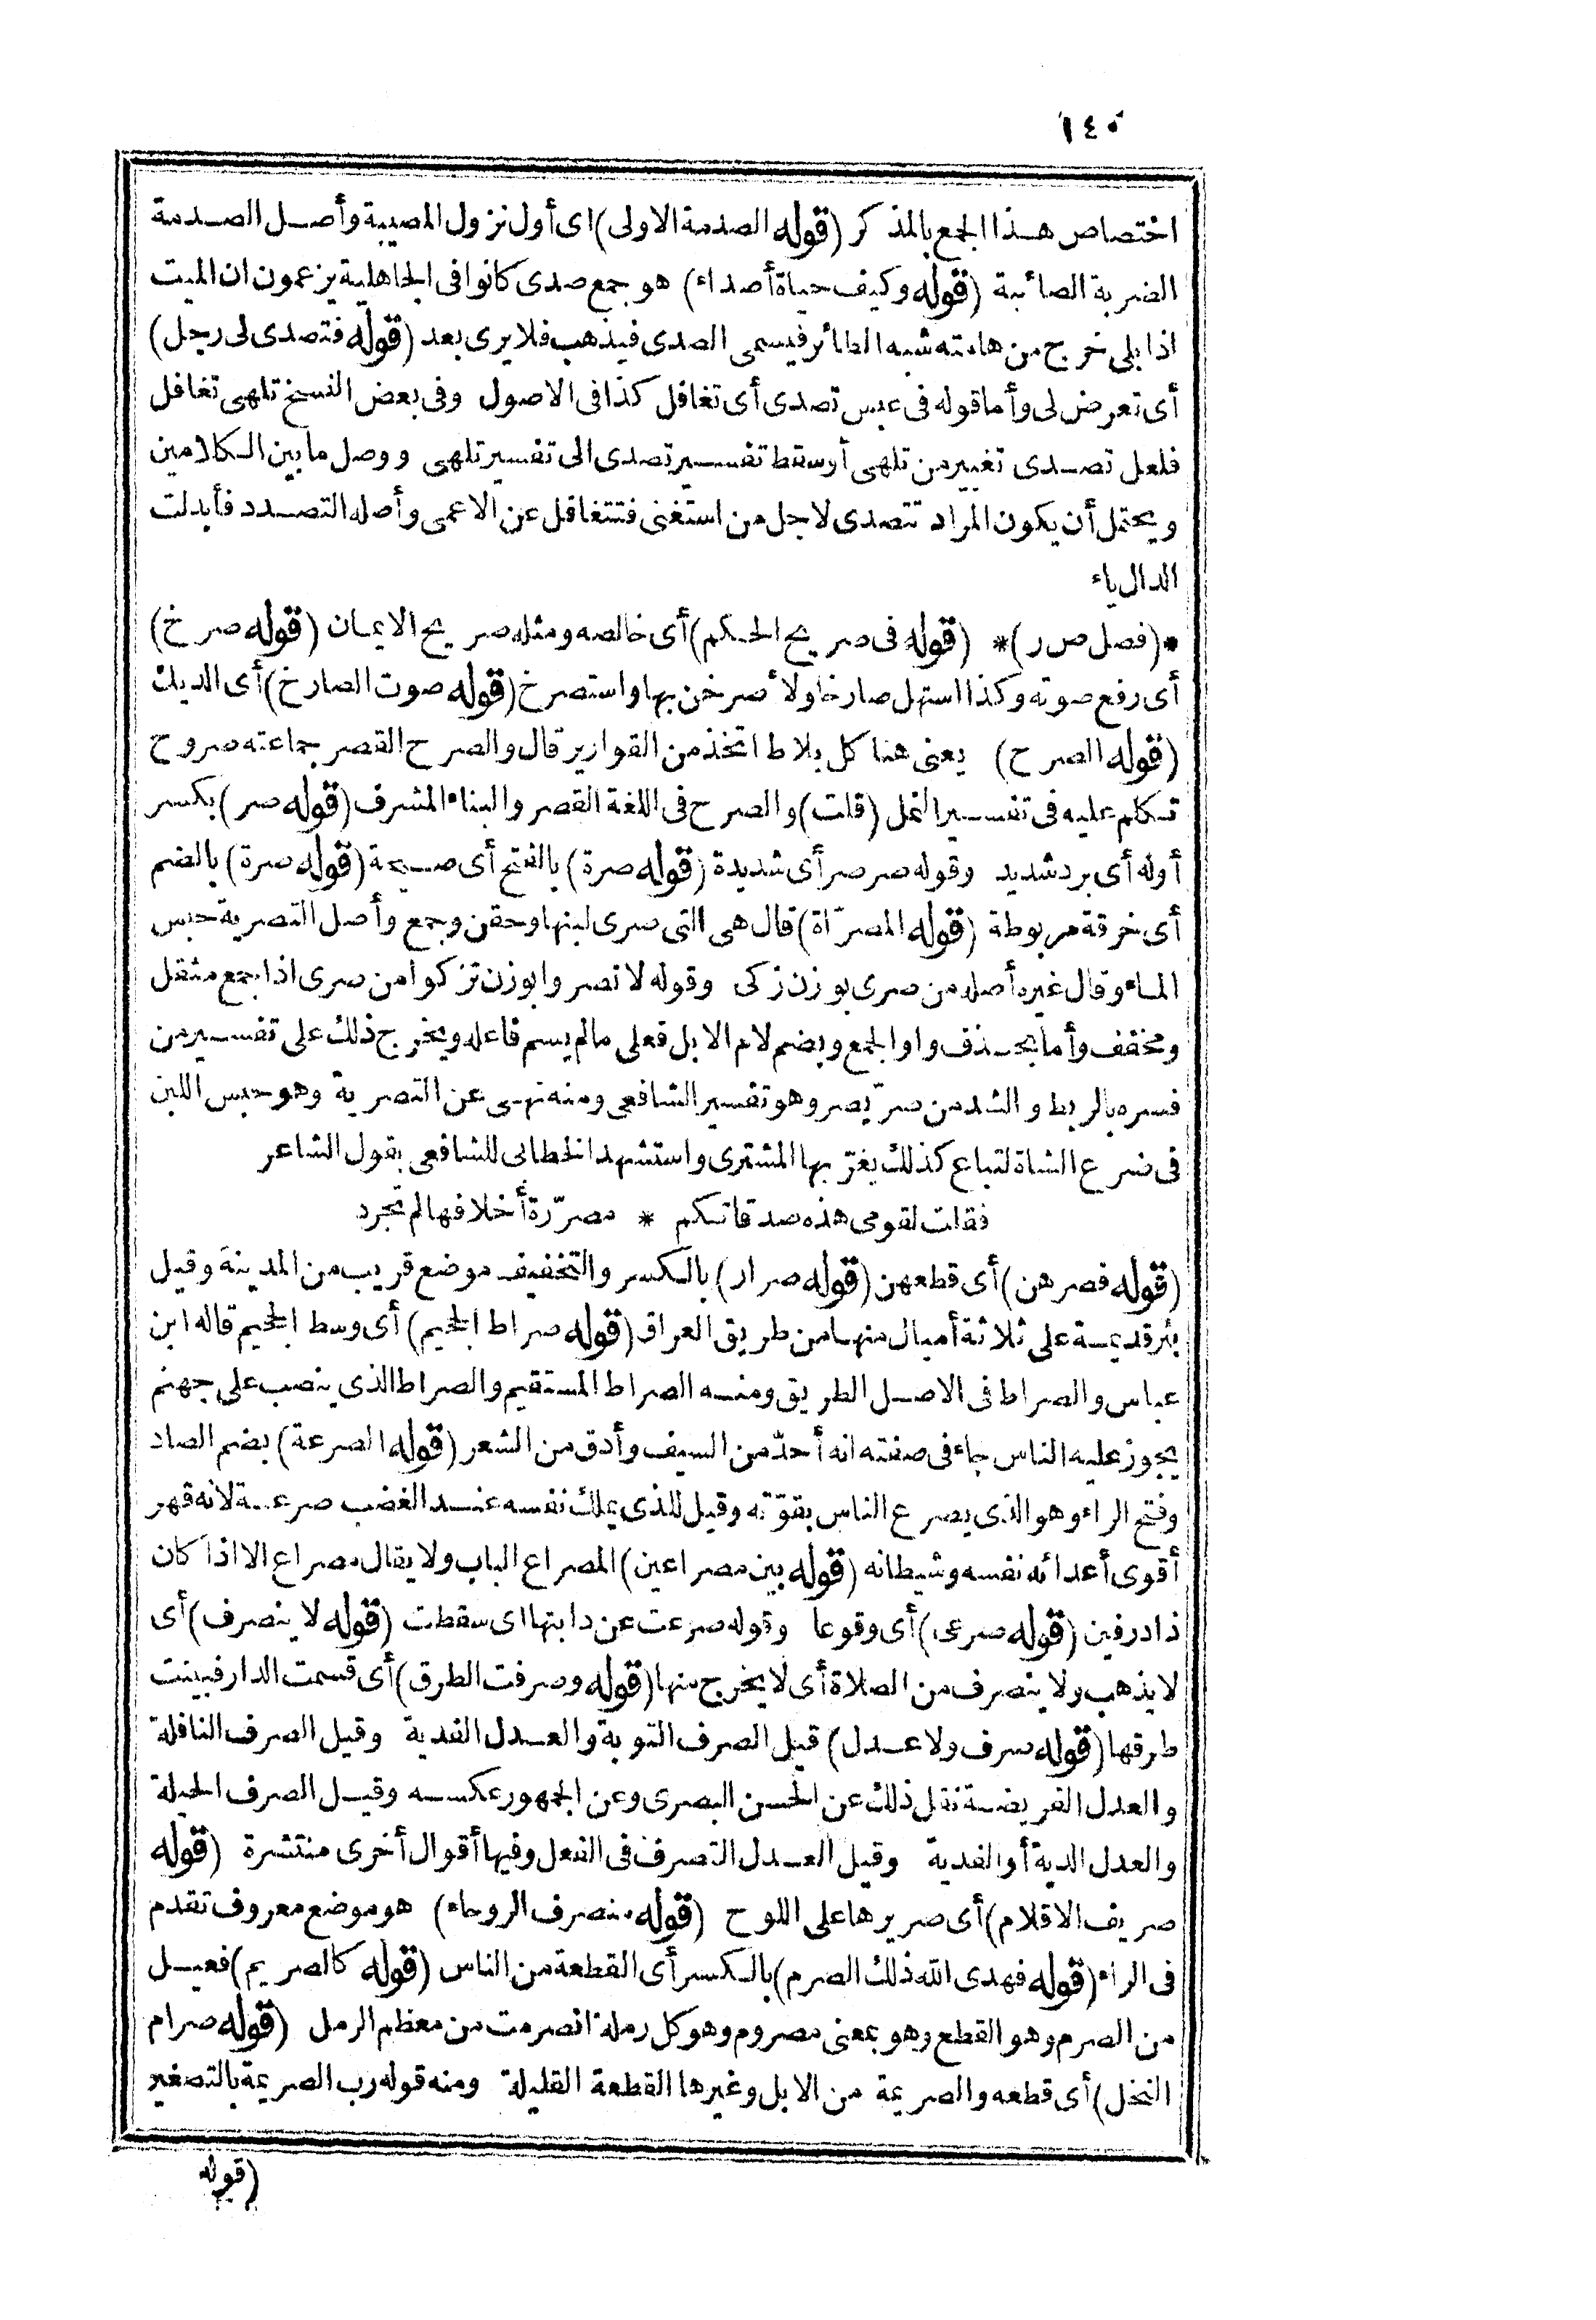 ١٤٠
اختصاص هذا الجمع بالمذكر (قوله الصدمة الاولى) اى أول نزول المصيبة وأصل الصدمة
الضربة الصائبة (قوله وكيف حياة أصداء) هو جمع صدى كانوا فى الجاهلية يزعمون ان الميت
اذا بلى خرج من هامته شبه الطائر فيسمى الصدى فيذهب فلا يرى بعد (قوله فتصدى لى رجل)
أى تعرض لى وأما قوله فى عبس تصدى أى تغافل كذا فى الاصول وفى بعض النسخ تلهى تغافل
فلعل تصدى تغيير من تلهى أو سقط تفسير تصدى الى تفسير تلهى ووصل ما بين الكلامين
ويحتمل أن يكون المراد تتصدى لاجل من استغنى فتتغافل عن الاعمى وأصله التصدد فأبدلت
الدال ياء
*(فصل ص ر)* (قوله فى صريح الحكم) أى خالصه ومثله صريح الايمان (قوله صرخ)
أى رفع صوته وكذا استهل صارخا ولأصرخن بها واستصرخ (قوله صوت الصارخ) أى الديك
(قوله الصرح) يعنى هنا كل بلاط اتخذ من القوارير قال والصرح القصر جماعته صروح
تكلم عليه فى تفسير النمل (قلت) والصرح فى اللغة القصر والبناء المشرف (قوله صر) بكسر
أوله أى برد شديد وقوله صرصر أى شديدة (قوله صرة) بالفتح أى صيحة (قوله صرة) بالضم
أى خرقة مربوطة (قوله المصرّاة) قال هى التى صرى لبنها وحقن وجمع وأصل التصرية حبس
الماء وقال غيره أصله من صرى بوزن زكى وقوله لا تصروا بوزن تزكوا من صرى اذا جمع مثقل
ومخفف وأما بحذف واو الجمع وبضم لام الابل فعلى ما لم يسم فاعله ويخرج ذلك على تفسير من
فسره بالربط والشد من صرّ يصر وهو تفسير الشافعى ومنه نهى عن التصرية وهو حبس اللبن
فى ضرع الشاة لتباع كذلك يغترّ بها المشترى واستشهد الخطابى للشافعى بقول الشاعر
فقلت لقومى هذه صدقاتكم * مصرّرة أخلافها لم تجرد
(قوله فصرهن) أى قطعهن (قوله صرار) بالكسر والتخفيف موضع قريب من المدينة وقيل
بئر قديمة على ثلاثة أميال منها من طريق العراق (قوله صراط الجحيم) أى وسط الجحيم قاله ابن
عباس والصراط فى الاصل الطريق ومنه الصراط المستقيم والصراط الذى ينصب على جهنم
يجوز عليه الناس جاء فى صفته انه أحدّ من السيف وأدق من الشعر (قوله الصرعة) بضم الصاد
وفتح الراء وهو الذى يصرع الناس بقوّته وقيل للذى يملك نفسه عند الغضب صرعة لانه قهر
أقوى أعدائه نفسه وشيطانه (قوله بين مصراعين) المصراع الباب ولا يقال مصراع الا اذا كان
ذا درفين (قوله صرعى) أى وقوعا وقوله صرعت عن دابتها اى سقطت (قوله لا ينصرف) أى
لا يذهب ولا ينصرف من الصلاة أى لا يخرج منها (قوله وصرفت الطرق) أى قسمت الدار فبينت
طرقها (قوله صرف ولا عدل) قيل الصرف التوبة والعدل الفدية وقيل الصرف النافلة
والعدل الفريضة نقل ذلك عن الحسن البصرى وعن الجمهور عكسه وقيل الصرف الحيلة
والعدل الدية أو الفدية وقيل العدل التصرف فى الفعل وفيها أقوال أخرى منتشرة (قوله
صريف الاقلام) أى صريرها على اللوح (قوله منصرف الروحاء) هو موضع معروف تقدم
فى الراء (قوله فهدى الله ذلك الصرم) بالكسر أى القطعة من الناس (قوله كالصريم) فعيل
من الصرم وهو القطع وهو بمعنى مصروم وهو كل رملة انصرمت من معظم الرمل (قوله صرام
النخل) أى قطعه والصريمة من الابل وغيرها القطعة القليلة ومنه قوله رب الصريمة بالتصغير
(قوله